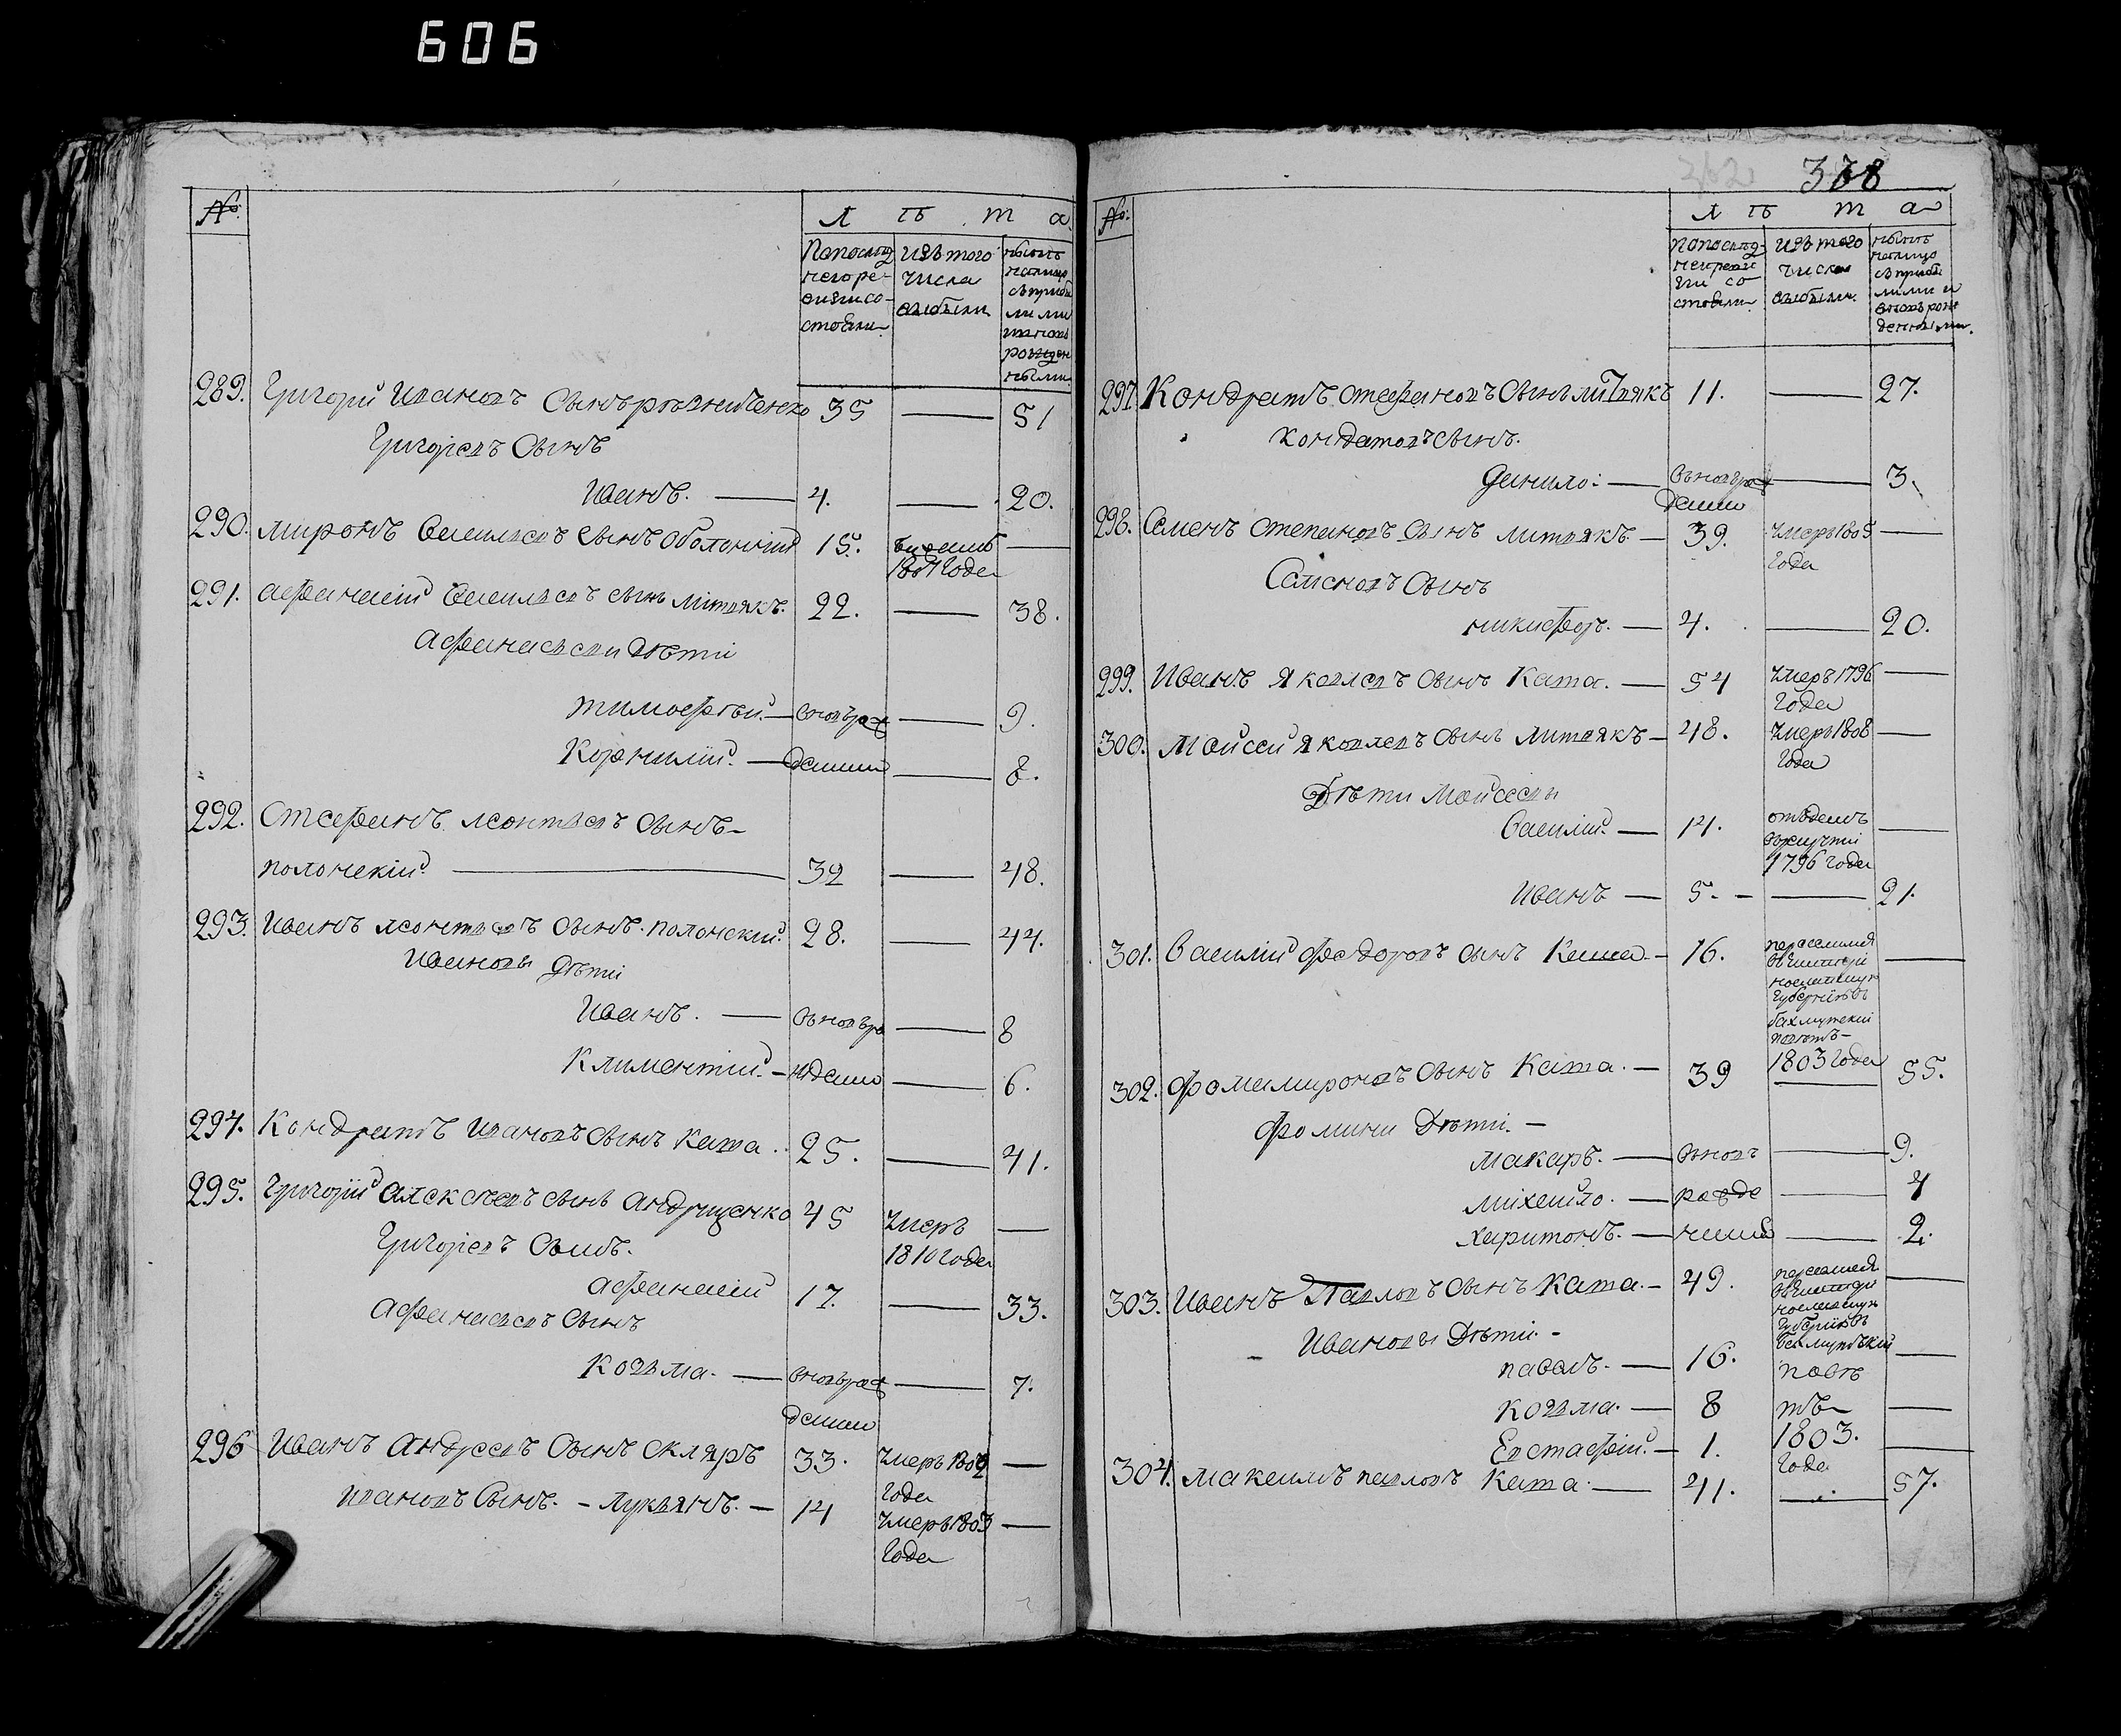 606
№
Л ѣ т а
По послед
ней ре-
визіи со-
стояли
Изъ того
числа
выбыли
ныне
налицо
съ прибы
лыми
и вновь
рожден
ными
289. Григорій Ивановъ Сынъ 35 — 51
Григорьевъ Сынъ
Иванъ. — 4. — 20.
290. Миронъ Васильевъ Сынъ Оболонскій 15. —
Года
291. Афанасій Васильевъ Сынъ Литвякъ. 22. — 38.
Афанасьевы Дѣти
Тимофѣй. — вновь рож — 9.
Корнилій. — денни — 8.
292. Стефанъ Леонтьевъ Сынъ —
Полонскій — 32 — 48.
293. Иванъ Леонтьевъ Сынъ Полонскій. 28. — 44.
Ивановы Дѣти
Иванъ. — вновь ро — 8
Климентій. — ждени — 6.
294. Кондратъ Ивановъ Сынъ Ката. 25. — 41.
295. Григорій Алексѣевъ Сынъ Андрущенко 45 умеръ —
1810 Года
Григорьевъ Сынъ.
Афанасій 17. — 33.
Афанасьевъ Сынъ
Козьма. — вновь рож — 7.
денни
296 Иванъ Андреевъ Сынъ Скляръ 33. умеръ 1802 —
Года
Ивановъ Сынъ. — Лукьянъ. — 14 умеръ 1803 —
Года
378
№
Л ѣ т а
По послед-
ней реви
зіи со
стояли
Изъ того
числа
выбыли
ныне
налицо
съ прибы
лыми и
вновь рож
денными.
297. Кондратъ Стефановъ Сынъ Литвякъ 11. — 27.
Кондратовъ Сынъ.
Данило: — вновь рож — 3.
денни
298. Семенъ Степановъ Сынъ Литвякъ. — 39. умеръ 1805 —
Года
Семеновъ Сынъ
Никифоръ. — 4. — 20.
299. Иванъ Яковлевъ Сынъ Ката. — 54 умеръ 1796 —
Года
300. Мойсей Яковлевъ Сынъ Литвякъ — 48. умеръ 1808 —
Года
Дѣти Мойсеевы
Василій. — 14. отданъ —
в рекруты
1796 Года
Иванъ — 5. — — 21.
301. Василій Федоровъ Сынъ Каша — 16. переселился —
в Екатери
нославскую
Губернію въ
бахмутскій
повѣтъ —
1803 Года
302. Фома Мироновъ Сынъ Ката. — 39 — 55.
Фомины Дѣти. —
Макаръ. — вновь — 9.
Михайло. — рожде — 4
Харитонъ. — нни — 2.
303. Иванъ Павловъ Сынъ Ката. — 49. переселился —
в Екатери
нославскую
Губернію въ
Бахмутскій
Ивановы Дѣти. —
Павелъ. — 16. повѣ —
Козьма. — 8 тъ —
Евстафій. — 1. 1803. —
Года
304. Максимъ Павловъ Ката. — 41. — 57.